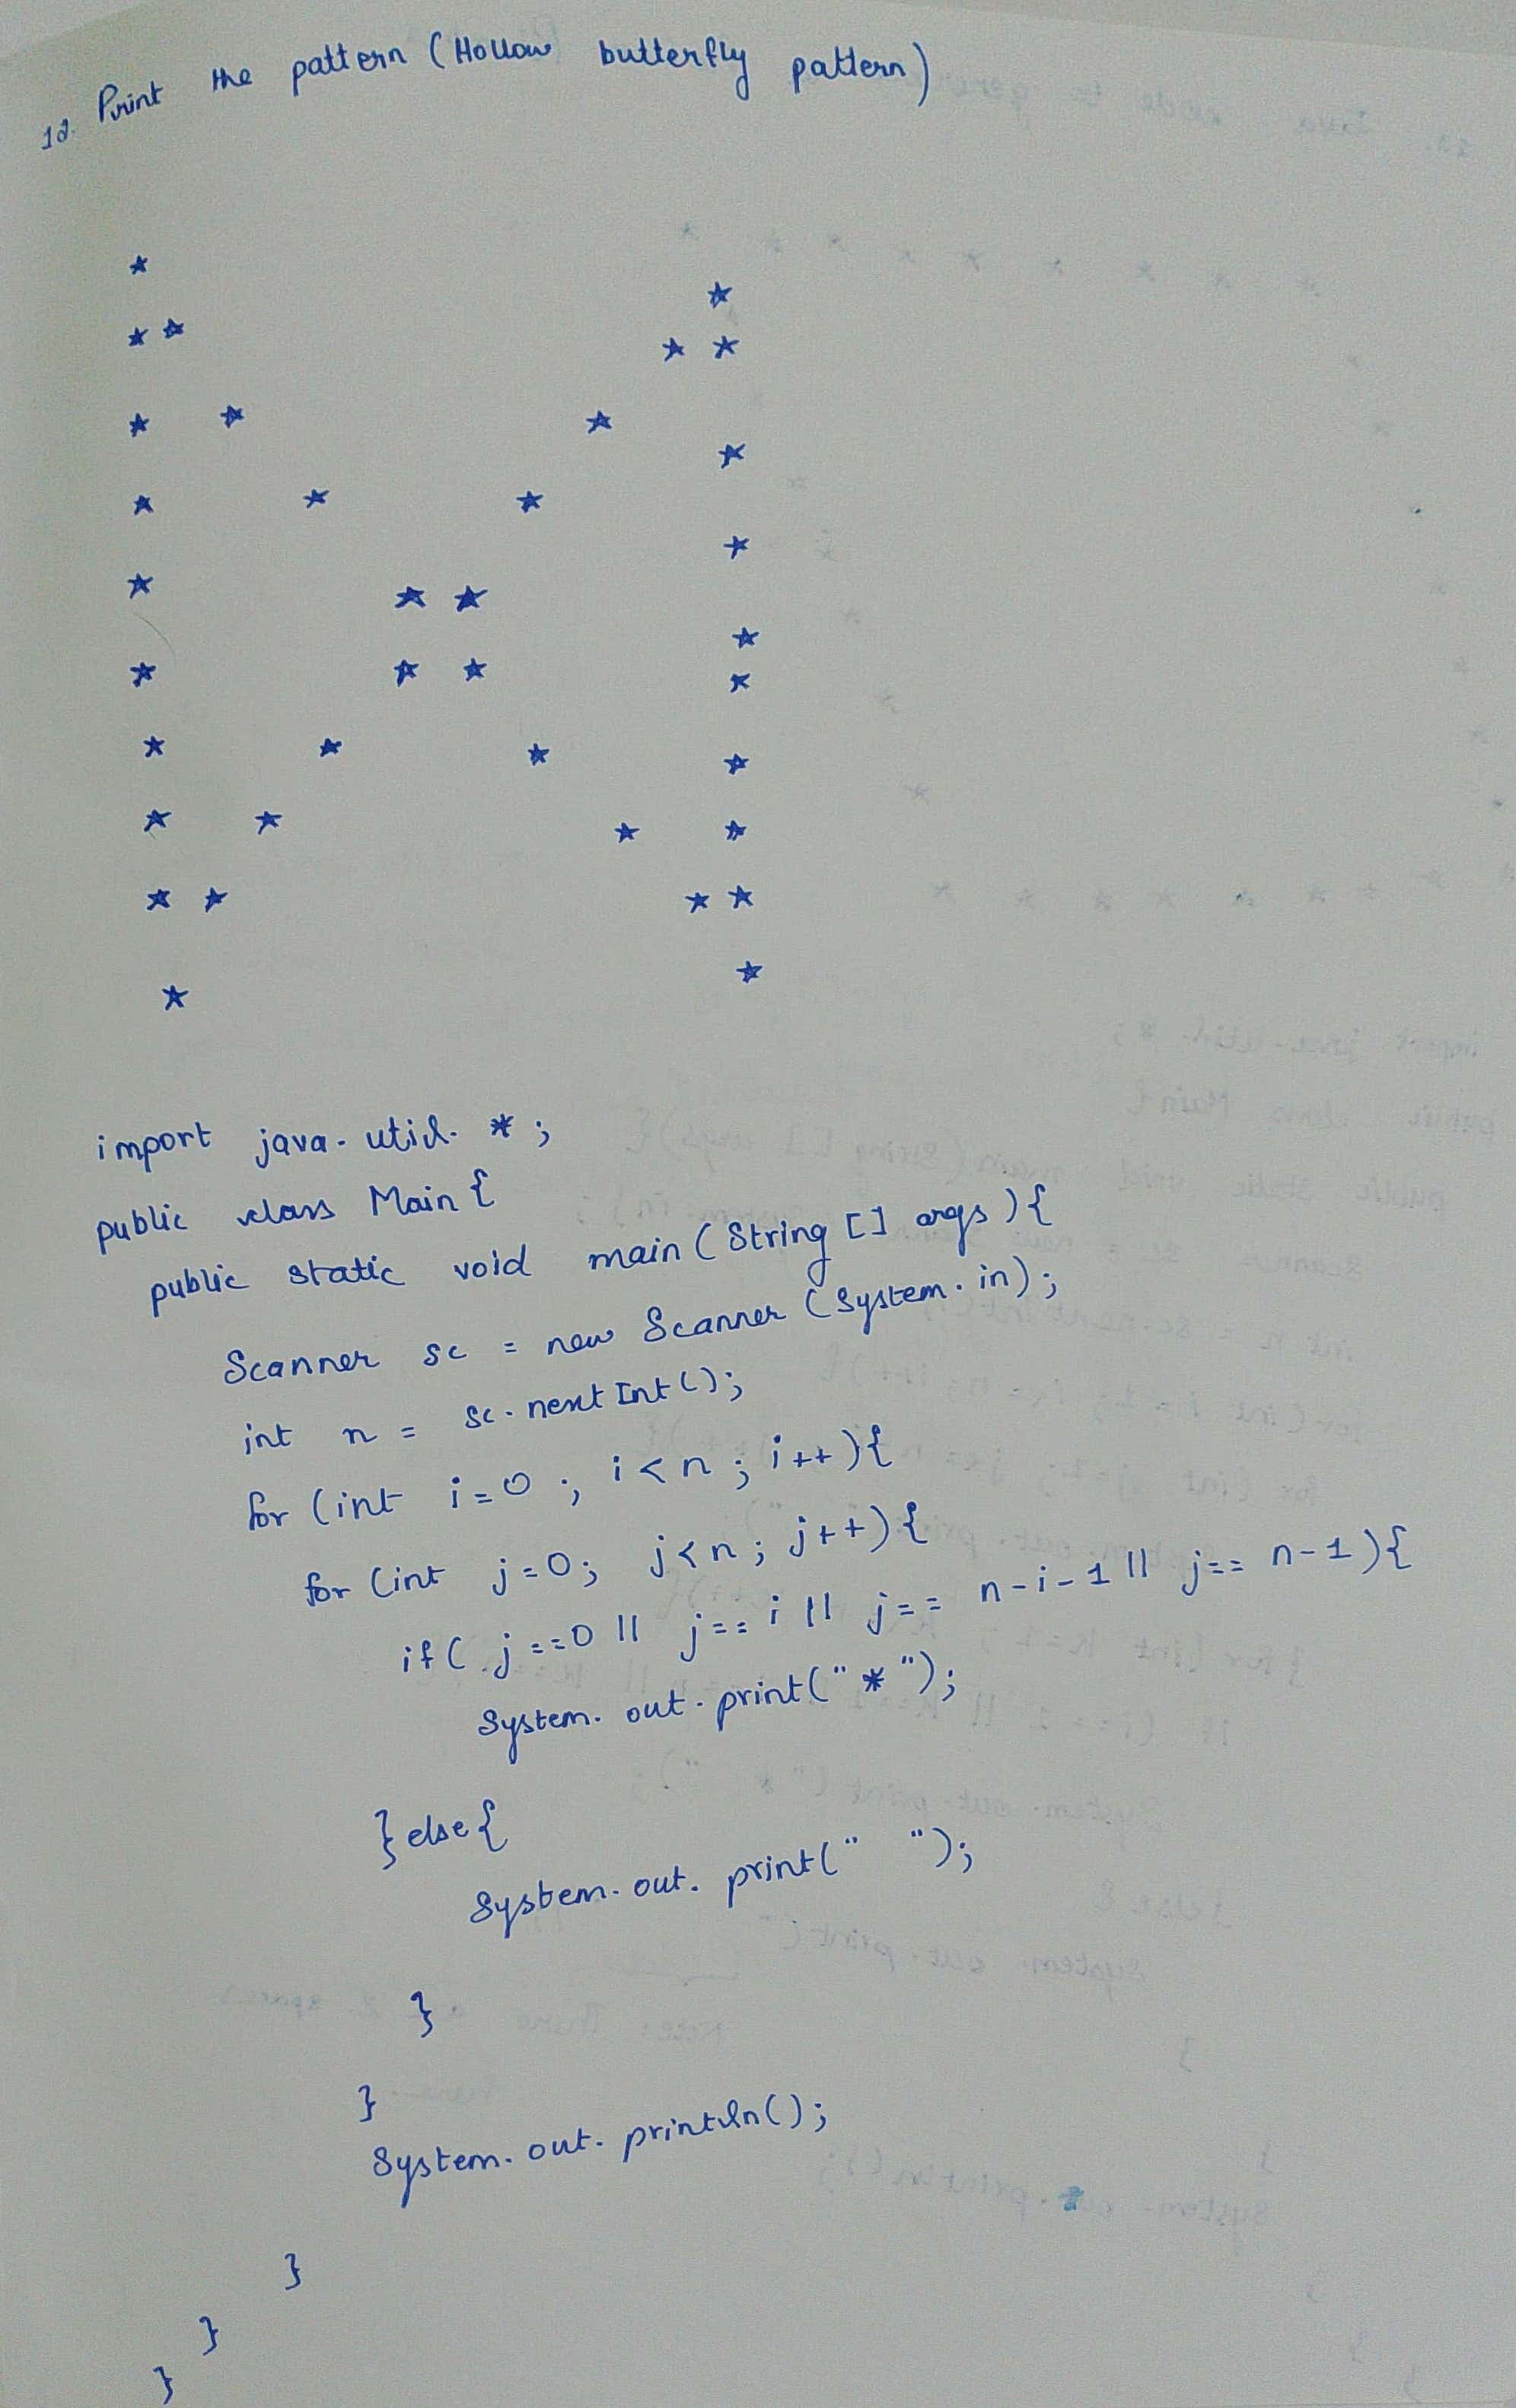 12. Print the pattern (Hollow butterfly pattern)
*
*
* *
* *
* *
*
*
* * *
*
*
* *
*
* * *
*
* * * *
* * * *
* * * *
* *
*
*
import java.util.*;
public class Main{
public static void main(String [] args){
Scanner sc = new Scanner (System.in);
int n = sc.nextInt();
for (int i=0 ; i<n ; i++){
for (int j=0; j<n; j++){
if( j==0 || j==i || j== n-i-1 || j== n-1){
System.out.print("*");
}else{
System.out.print(" ");
}
}
System.out.println();
}
}
}